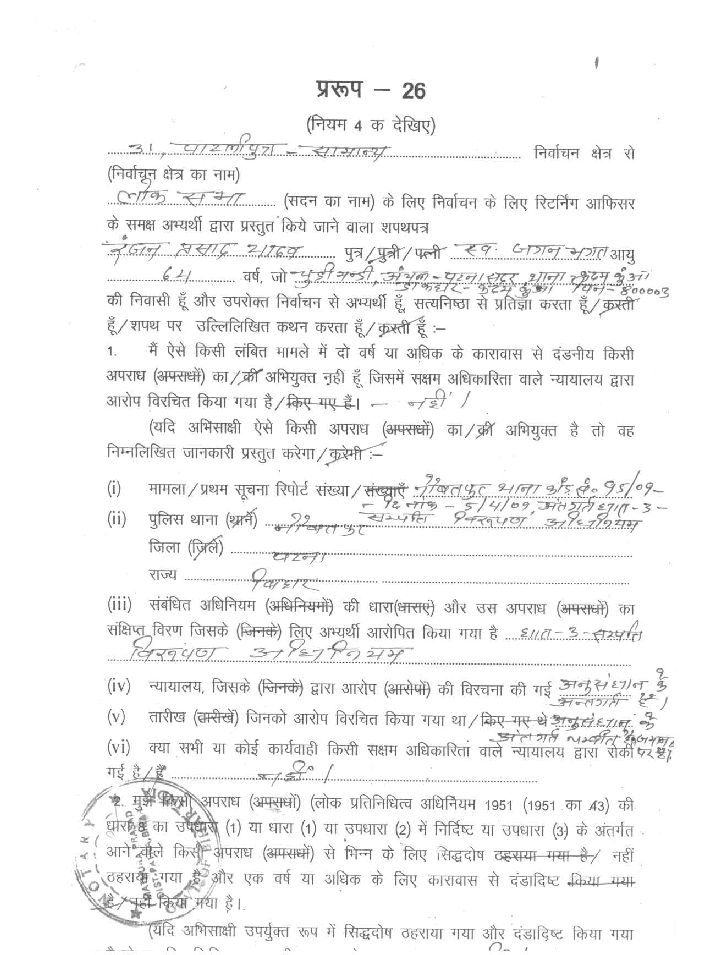 1
प्ररूप – 26
(नियम 4 क देखिए)
31, पाटलीपुत्रा – सामान्य निर्वाचन क्षेत्र से
(निर्वाचन क्षेत्र का नाम)
लोक सभा (सदन का नाम) के लिए निर्वाचन के लिए रिटर्निंग आफिसर
के समक्ष अभ्यर्थी द्वारा प्रस्तुत किये जाने वाला शपथपत्र
रंजन प्रसाद यादव पुत्र/पुत्री/पत्नी स्व० जगन भगत आयु
64 वर्ष, जो अंचल-पटना सदर थाना कदम कुँआ
डाकघर-कदम कुँआ पिन-800003
की निवासी हूँ और उपरोक्त निर्वाचन से अभ्यर्थी हूँ, सत्यनिष्ठा से प्रतिज्ञा करता हूँ/करती
हूँ/शपथ पर उल्लिलिखित कथन करता हूँ/करती हूँ :–
1. मैं ऐसे किसी लंबित मामले में दो वर्ष या अधिक के कारावास से दंडनीय किसी
अपराध (अपराधों) का/की अभियुक्त नही हूँ जिसमें सक्षम अधिकारिता वाले न्यायालय द्वारा
आरोप विरचित किया गया है/किए गए हैं। – नहीं।
(यदि अभिसाक्षी ऐसे किसी अपराध (अपराधों) का/की अभियुक्त है तो वह
निम्नलिखित जानकारी प्रस्तुत करेगा/करेगी :–
(i) मामला/प्रथम सूचना रिपोर्ट संख्या/संख्याएँ थाना कांड सं० 95/09–
– दिनांक – 5/4/09, अंतर्गत धारा-3-
(ii) पुलिस थाना (थाने) सम्पत्ति विरूपण अधिनियम
जिला (जिले) पटना
राज्य बिहार
(iii) संबंधित अधिनियम (अधिनियमों) की धारा(धाराएं) और उस अपराध (अपराधों) का
संक्षिप्त विरण जिसके (जिनके) लिए अभ्यर्थी आरोपित किया गया है धारा-3-सम्पत्ति
विरूपण अधिनियम
(iv) न्यायालय, जिसके (जिनके) द्वारा आरोप (आरोपों) की विरचना की गई अनुसंधान के
अन्तर्गत है।
(v) तारीख (तारीखें) जिनको आरोप विरचित किया गया था/किए गए थे अनुसंधान के
अंतर्गत
(vi) क्या सभी या कोई कार्यवाही किसी सक्षम अधिकारिता वाले न्यायालय द्वारा रोकी
गई है/हैं नहीं।
2. मुझे किसी अपराध (अपराधों) (लोक प्रतिनिधित्व अधिनियम 1951 (1951 का 43) की
धारा का उपधारा (1) या धारा (1) या उपधारा (2) में निर्दिष्ट या उपधारा (3) के अंतर्गत
आने वाले किसी अपराध (अपराधों) से भिन्न के लिए सिद्धदोष ठहराया गया है/ नहीं
ठहराया गया है और एक वर्ष या अधिक के लिए कारावास से दंडादिष्ट किया गया
है/नहीं किया गया है।
(यदि अभिसाक्षी उपर्युक्त रूप में सिद्धदोष ठहराया गया और दंडादिष्ट किया गया
NOTARY